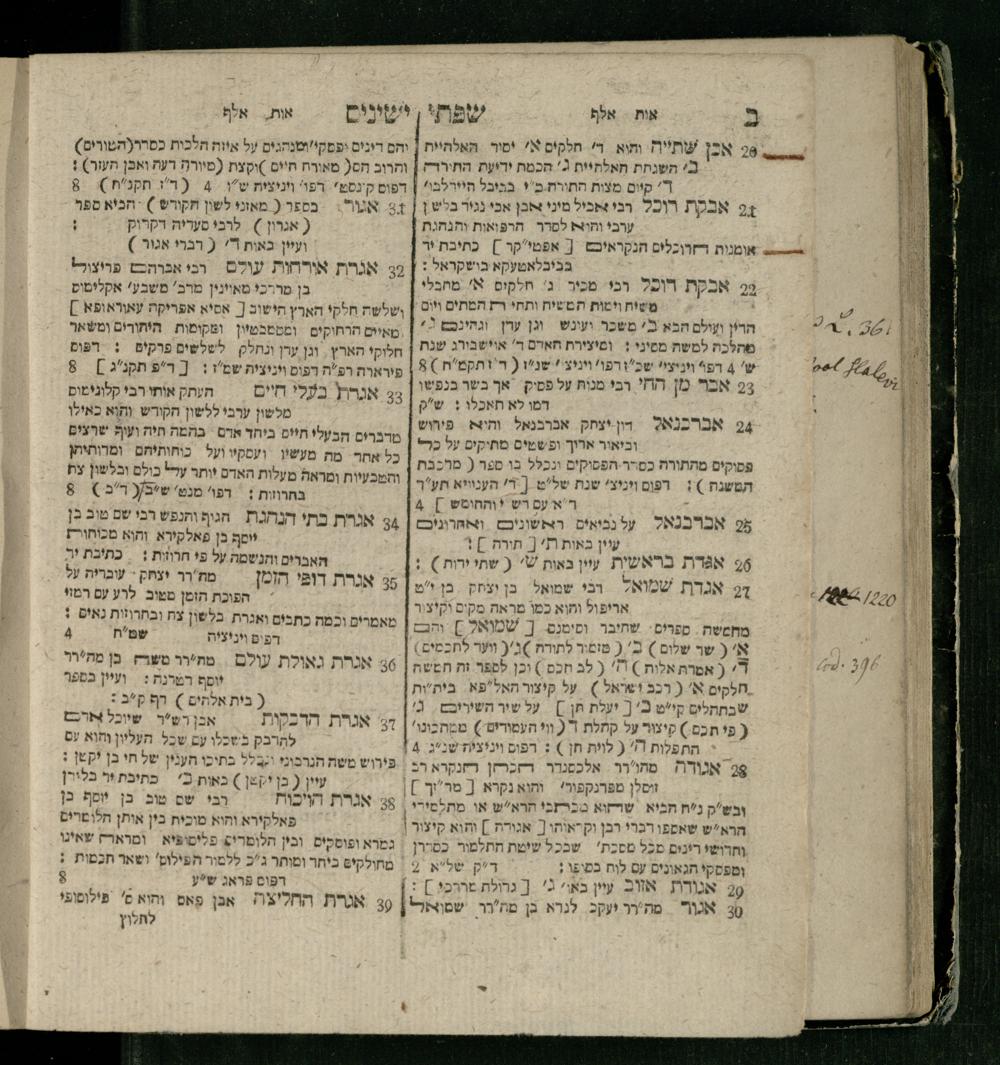 ב אות אלף שפתי ישינים אות אלף
20 אבן שתייה והוא ד׳ חלקים א׳ יסוד האלהיית
ב׳ השגחת האלהיית ג׳ הכמת ידיעת התורה
ד׳ קיום מצות התורה כ״י בגיבל היירלבו׳
21 אבקת רוכל רבי אביל מיני אבן אבי נגיד בלשון
ערבי והוא לסדר הרפואות והנהגת
אומנות הרוכלים הנקראים [ אפטי״קר ] כתיבת יד
בביבלאטעקא בושקראל :
22 אבקת רוכל רבי מכיר ג׳ חלקים א׳ מחבלי
משיח וימות המשיח ותחיית המתים ויום
הדין ועולם הבא ב׳ משכר ועונש וגן עדן וגהינם ג׳
מהלכה למשה מסיני : ומיצירת האדם ד׳ אוישבורג שנת
ש׳ 4 דפו׳ ויניצי׳ שכ״ז דפו׳ ויניצי׳ שנ״ז ( ר״ז תקמ״ח ) 8
23 אבר מן החי רבי מנוח על פסוק אך בשר בנפשו
דמו לא תאכלו : ש״ק
24 אברבנאל דון יצחק אברבנאל והוא פירוש
וביאור אריך ופשטים מתיקים על כל
פסוקים מהתורה כסדר הפסוקים ונכלל בו ספר ( מרכבת
המשנה ) : דפוס ויניצ׳ שנת של״ט [ ד׳ הענוויא תע״ד
ד״א עם רש״י והחומש ] 4
25 אברבנאל על נביאים ראשונים ואחרונים
עיין באות ת׳ [ תורה ] :
26 אגדת בראשית עיין באות ש׳ ( שתי ידות ) :
27 אגדת שמואל רבי שמואל בן יצחק בן י״ט
אריפול והוא כמו מראה מקום וקיצור
מחמשה ספרים שחיבר וסימנם [ שמואל ] והם
א׳ ( שר שלום ) ב׳ ( מזמור לתודה ) ג׳ ( וועד לחכמים )
ד׳ ( אמרת אלוה ) ה׳ ( לב חכם ) וכן לספר זה חמשה
חלקים א׳ ( רכב ישראל ) על קיצור האל״פא בית״ות
שבתהלים קי״ט ב׳ [ יעלת חן ] על שיר השירים ג׳
( פי חכם ) קיצור על קהלת ד ( ווי העמודים ) ממתכונו׳
התפלות ה׳ ( לוית חן ) : דפוס ויניציה שנ״ג 4
28 אגודה מהו׳רר אלכסנדר הכהן הנקרא רב
זוסלן מפרנקפור׳ והוא נקרא [ מר״יך ]
ובש״ק נ״ח הביא שהוא מכתבי הרא״ש או מתלמידי
הרא״ש שאספו דברי רבן וקראוהו [ אגודה ] והוא קיצור
וחדושי דינים מכל מסכת׳ שבכל שיטת התלמוד כסדרן
ומפסקי הגאונים עם לוח בסופו : ד״ק של״א 2
29 אגודת אזוב עיין באו׳ ג׳ [ גדולת מרדכי ] :
30 אגור מה׳רר יעקב לנדא בן מה׳רר שמואל
והם דינים ופסקי׳ ומנהגים על איזה הלכות כסדר (הטורים)
והרוב הם ( מאורח חיים ) וקצת (מיורה דעה ואבן העזר) :
דפוס קונסט׳ דפו׳ ויניציה ש״ו 4 ( ד״ז תקנ״ח ) 8
31 אגור בספר ( מאזני לשון הקודש ) הביא ספר
( אגרון ) לרבי סעדיה דקדוק :
ועיין באות ד׳ ( דברי אגור )
32 אגרת אורחות עולם רבי אברהם פריצול
בן מרדכי מאוינין מדב׳ משבע׳ אקלימות
ושלשה חלקי הארץ הישוב [ אסיא אפריקה עאוראופא ]
מאיים הרחוקים ומסמבטיון ומקומות היהודים ומשאר
חלוקי הארץ וגן עדן ונחלק לשלשים פרקים : דפוס
פירארה רפ״ה דפוס ויניציה שמ״ז : [ ד״פ תקנ״ג ] 8
33 אגרת בעלי חיים העתק אותו רבי קלונימוס
מלשון ערבי ללשון הקודש והוא כאילו
מדברים הבעלי חיים ביחד אדם בהמה חיה ועוף שרצים
כל אחד מה מעשיו ועסקיו ועל כוחותיהם ומדותיהן
והטבעיות ומראה מעלות האדם יותר על כולם ובלשון צח
בחרוזות : דפו׳ מנט׳ ש״ב/( ד״ב ) 8
34 אגרת בתי הנהגת הגוף והנפש רבי שם טוב בן
יוסף בן פאלקירא והוא מכוחות
האברים והנשמה על פי חרוזות : כתיבת יד
35 אגרת דופי הזמן מה׳רר יצחק עובריה על
הפוכת הזמן מטוב לרע עם רמזי
מאמרים וכמה כתבים ואגרת בלשון צח ובחרוזות נאים :
דפוס ויניציה שמ״ח 4
36 אגרת גאולת עולם מה׳רר משה בן מה׳רר
יוסף דטרנה : ועיין בספר
( בית אלהים ) דף ק״ב :
37 אגרת הדבקות אבן רש״ד שיוכל אדם
להדבק בשכלו עם שכל העליון והוא עם
פירוש משה הנרבוני ונכלל בתיכו הענין של חי בן יקטן :
עיין ( בן יקטן ) באות ב׳ כתיבת יד בלידן
38 אגרת הויכוח רבי שם טוב בן יוסף בן
פאלקירא והוא מוכיח בין אותן הלומדים
גמרא ופוסקים ובין הלומדים פלוסופיא ומראה שאינו
מחולקים ביחד ומותר ג״כ ללמוד הפילוס׳ ושאר חכמות :
דפוס פראג ש״ע 8
39 אגרת החליצה אבן פאס והוא ס׳ פילוסופי
לחלוץ
L. 361
Halevi
1220
Cod. 396